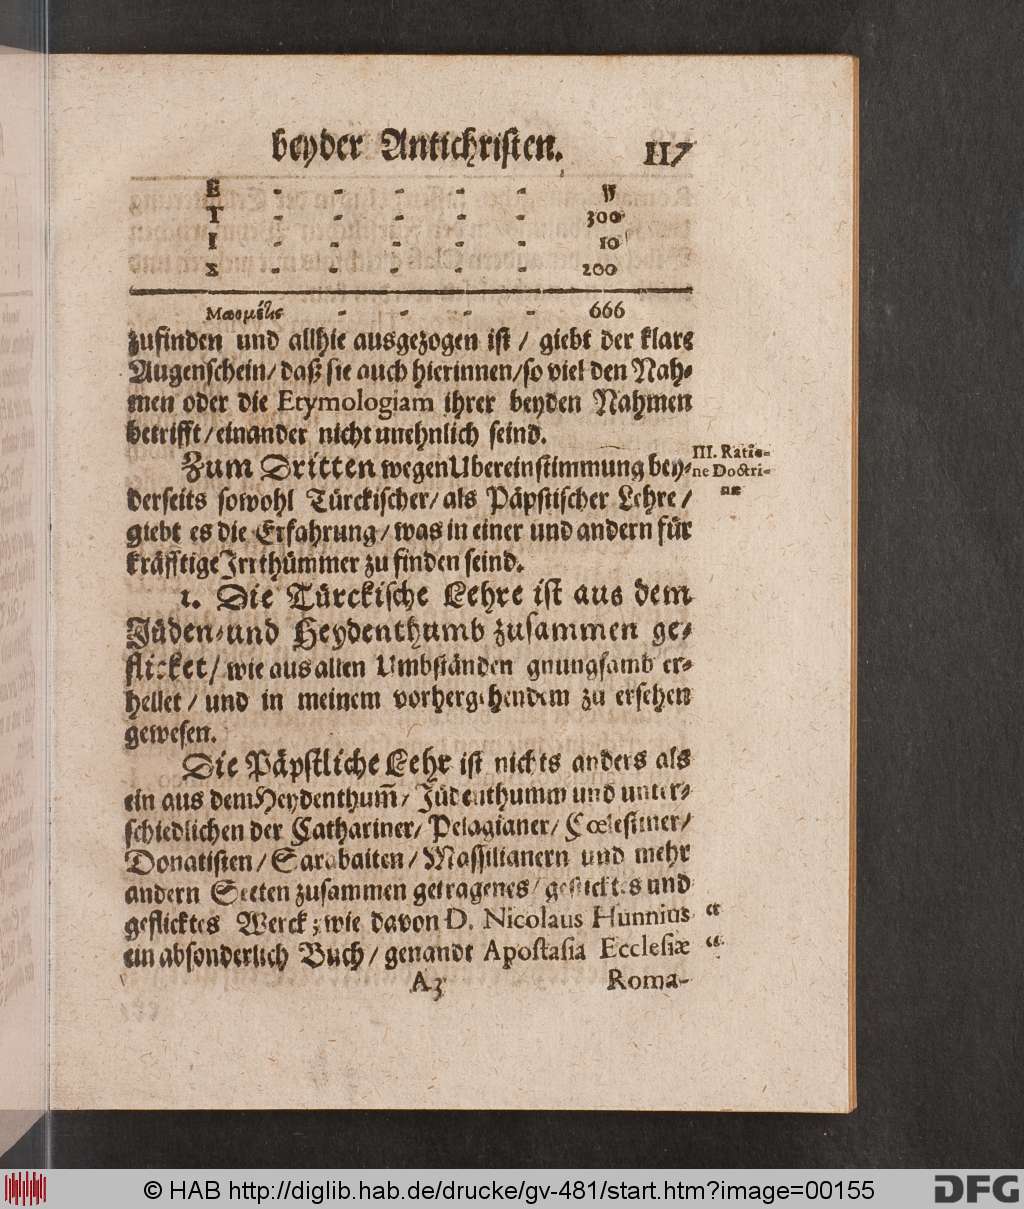 beyder Antichristen. 117
E - - - - - 5
T - - - - - 300
I - - - - - 10
Σ - - - - - 200
Μαομέτις - - - - 666
zufinden und allhie ausgezogen ist / giebt der klare
Augenschein / daß sie auch hierinnen / so viel den Nah-
men oder die Etymologiam ihrer beyden Nahmen
betrifft / einander nicht unehnlich seind.
Zum Dritten wegen Ubereinstimmung bey-
III. Ratio-
ne Doctri-
næ
derseits sowohl Türckischer / als Päpstischer Lehre /
giebt es die Erfahrung / was in einer und andern für
kräfftige Irrthümmer zu finden seind.
1. Die Türckische Lehre ist aus dem
Jüden- und Heydenthumb zusammen ge-
flicket / wie aus allen Umbständen gnungsamb er-
hellet / und in meinem vorhergehendem zu ersehen
gewesen.
Die Päpstliche Lehr ist nichts anders als
ein aus dem Heydenthum̃ / Jüdenthumm und unter-
schiedlichen der Cathariner / Pelagianer / Cœlestiner /
Donatisten / Sarabaiten / Massilianern und mehr
andern Secten zusammen getragenes / gesticktes und
geflicktes Werck ; wie davon D. Nicolaus Hunnius “
ein absonderlich Buch / genandt Apostasia Ecclesiæ “
A3 Roma-
© HAB http://diglib.hab.de/drucke/gv-481/start.htm?image=00155
DFG